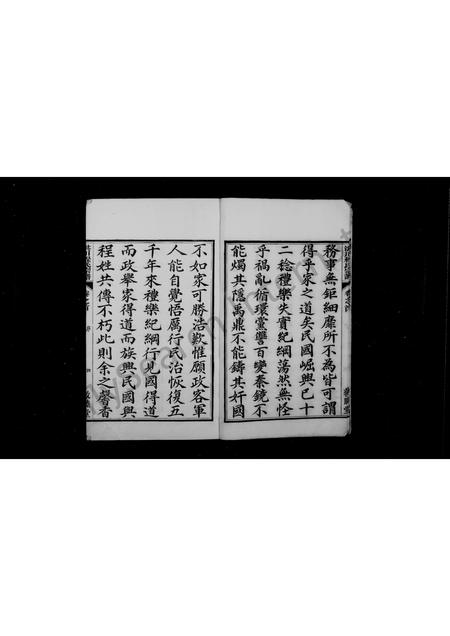 務事無鉅細靡所不為皆可謂
得乎家之道矣民國崛興已十
二稔禮樂失實紀綱蕩然無怪
乎禍亂循環黨訾百變秦鏡不
能燭其隱禹鼎不能鑄其奸國
不如家可勝浩歎惟願政客軍
人能自覺悟厲行民治恢復五
千年來禮樂紀綱行見國得道
而政舉家得道而族興民國與
程姓共傳不朽此則余之馨香